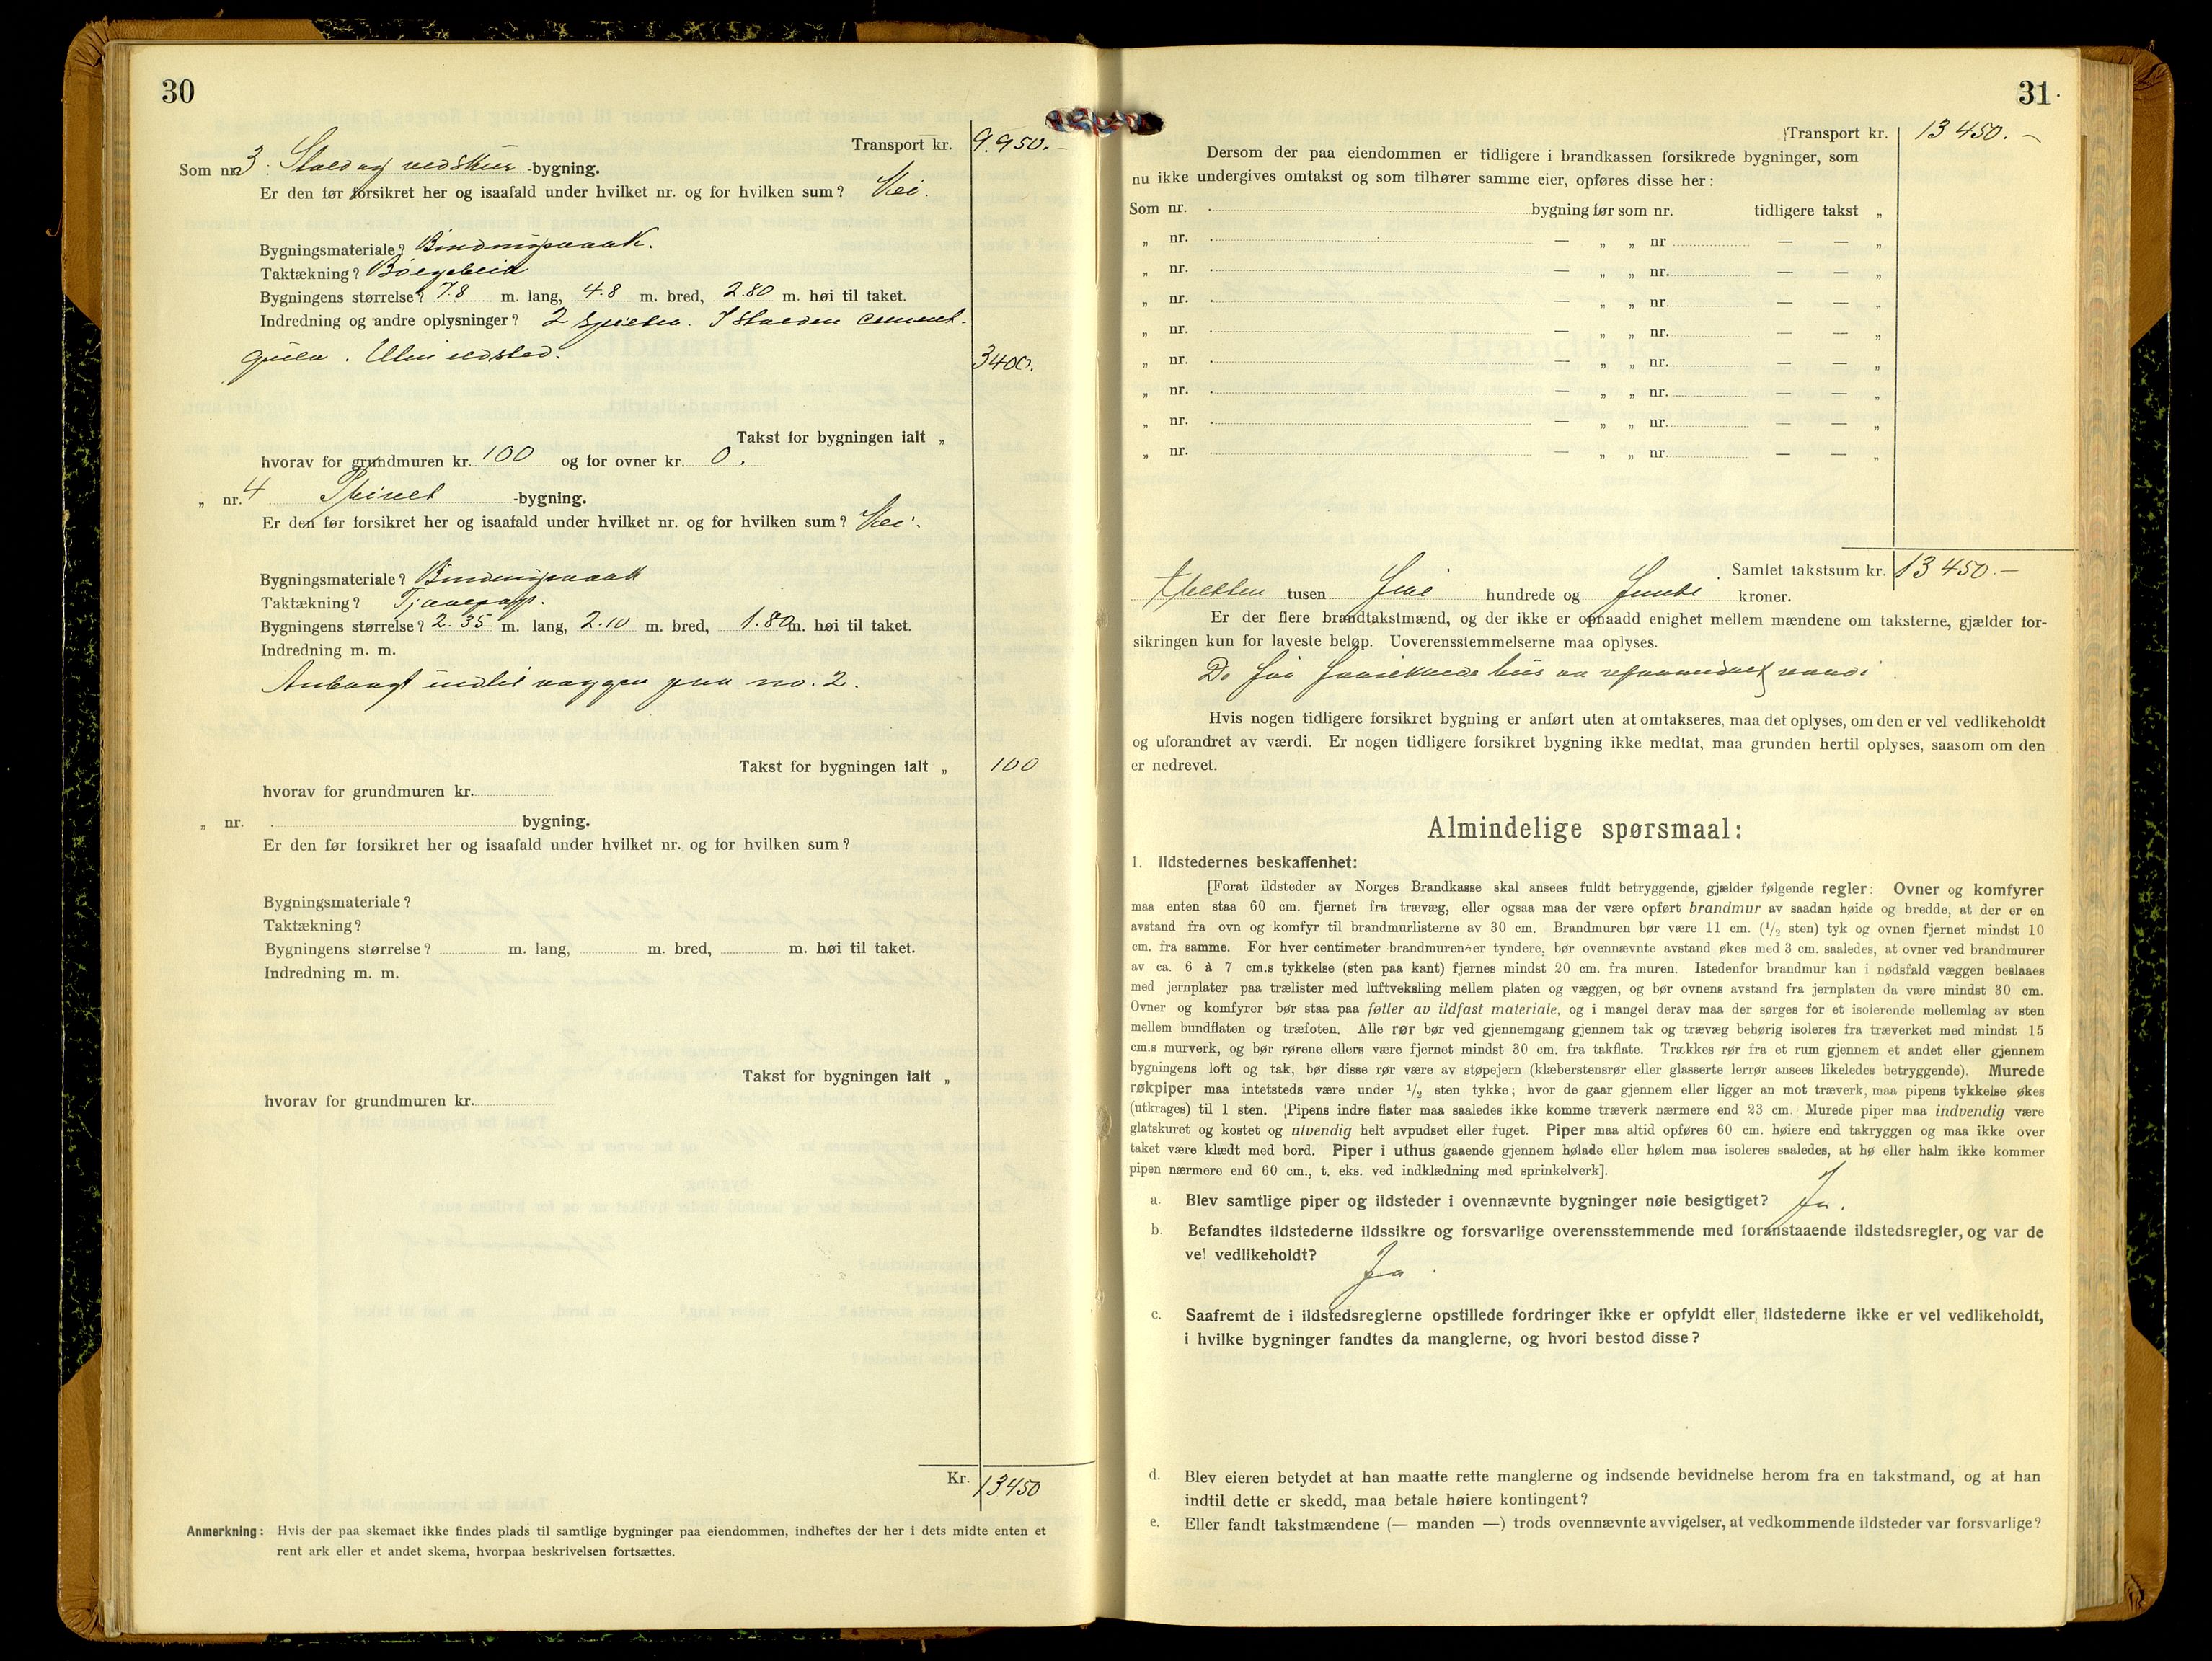 30
Transport kr. 9.950.-
Som nr. 3: Stald og vedskur -bygning.
Er den før forsikret her og isaafald under hvilket nr. og for hvilken sum? Nei.
Bygningsmateriale? Bindingsværk.
Taktækning? Bølgeblik
Bygningens størrelse? 7.8 m. lang, 4.8 m. bred, 2.80 m. høi til taket.
Indredning og andre oplysninger? 2 spiltau. I stalden cement-
gulv. Uten ildsted. 3400.
Takst for bygningen ialt „
hvorav for grundmuren kr. 100 og for ovner kr. 0.
„ nr. 4 -bygning.
Er den før forsikret her og isaafald under hvilket nr. og for hvilken sum? Nei.
Bygningsmateriale? Bindingsværk
Taktækning? Tjærepap.
Bygningens størrelse? 2.35 m. lang, 2.10 m. bred, 1.80 m. høi til taket.
Indredning m. m.
Anbragt indtil væggen paa no. 2.
Takst for bygningen ialt „ 100
hvorav for grundmuren kr.
„ nr. bygning.
Er den før forsikret her og isaafald under hvilket nr. og for hvilken sum?
Bygningsmateriale?
Taktækning?
Bygningens størrelse? m. lang, m. bred, m. høi til taket.
Indredning m. m.
Takst for bygningen ialt „
hvorav for grundmuren kr.
Kr. 13450
Anmerkning: Hvis der paa skemaet ikke findes plads til samtlige bygninger paa eiendommen, indheftes der her i dets midte enten et
rent ark eller et andet skema, hvorpaa beskrivelsen fortsættes.
31
Transport kr. 13450.-
Dersom der paa eiendommen er tidligere i brandkassen forsikrede bygninger, som
nu ikke undergives omtakst og som tilhører samme eier, opføres disse her:
Som nr. bygning før som nr. tidligere takst „
„ nr. — „ „ nr — — „
„ nr. — „ „ nr. — — „
„ nr. — „ „ nr. — — „
„ nr. — „ „ nr. — — „
„ nr. — „ „ nr. — — „
„ nr. — „ „ nr. — — „
„ nr. — „ „ nr. — — „
„ nr. — „ „ nr. — — „
Samlet takstsum kr. 13450.-
tretten tusen fire hundrede og femti kroner.
Er der flere brandtakstmænd, og der ikke er opnaadd enighet mellem mændene om taksterne, gjælder for-
sikringen kun for laveste beløp. Uoverensstemmelserne maa oplyses.
De før forsikrede hus av uforandret værdi.
Hvis nogen tidligere forsikret bygning er anført uten at omtakseres, maa det oplyses, om den er vel vedlikeholdt
og uforandret av værdi. Er nogen tidligere forsikret bygning ikke medtat, maa grunden hertil oplyses, saasom om den
er nedrevet.
Almindelige spørsmaal:
1. Ildstedernes beskaffenhet:
[Forat ildsteder av Norges Brandkasse skal ansees fuldt betryggende, gjælder følgende regler: Ovner og komfyrer
maa enten staa 60 cm. fjernet fra trævæg, eller ogsaa maa der være opført brandmur av saadan høide og bredde, at der er en
avstand fra ovn og komfyr til brandmurlisterne av 30 cm. Brandmuren bør være 11 cm. (1/2 sten) tyk og ovnen fjernet mindst 10
cm. fra samme. For hver centimeter brandmuren er tyndere, bør ovennævnte avstand økes med 3 cm. saaledes, at ovner ved brandmurer
av ca. 6 à 7 cm.s tykkelse (sten paa kant) fjernes mindst 20 cm. fra muren. Istedenfor brandmur kan i nødsfald væggen beslaaes
med jernplater paa trælister med luftveksling mellem platen og væggen, og bør ovnens avstand fra jernplaten da være mindst 30 cm.
Ovner og komfyrer bør staa paa føtter av ildfast materiale, og i mangel derav maa der sørges for et isolerende mellemlag av sten
mellem bundflaten og træfoten. Alle rør bør ved gjennemgang gjennem tak og trævæg behørig isoleres fra træverket med mindst 15
cm.s murverk, og bør rørene ellers være fjernet mindst 30 cm. fra takflate. Trækkes rør fra et rum gjennem et andet eller gjennem
bygningens loft og tak, bør disse rør være av støpejern (klæberstensrør eller glasserte lerrør ansees likeledes betryggende). Murede
røkpiper maa intetsteds være under 1/2 sten tykke; hvor de gaar gjennem eller ligger an mot træverk, maa pipens tykkelse økes
(utkrages) til 1 sten. Pipens indre flater maa saaledes ikke komme træverk nærmere end 23 cm. Murede piper maa indvendig være
glatskuret og kostet og utvendig helt avpudset eller fuget. Piper maa altid opføres 60 cm. høiere end takryggen og maa ikke over
taket være klædt med bord. Piper i uthus gaaende gjennem hølade eller hølem maa isoleres saaledes, at hø eller halm ikke kommer
pipen nærmere end 60 cm., t. eks. ved indklædning med sprinkelverk].
a. Blev samtlige piper og ildsteder i ovennævnte bygninger nøie besigtiget? Ja.
b. Befandtes ildstederne ildssikre og forsvarlige overensstemmende med foranstaaende ildstedsregler, og var de
vel vedlikeholdt? Ja.
c. Saafremt de i ildstedsreglerne opstillede fordringer ikke er opfyldt eller ildstederne ikke er vel vedlikeholdt,
i hvilke bygninger fandtes da manglerne, og hvori bestod disse?
d. Blev eieren betydet at han maatte rette manglerne og indsende bevidnelse herom fra en takstmand, og at han
indtil dette er skedd, maa betale høiere kontingent?
e. Eller fandt takstmændene (— manden —) trods ovennævnte avvigelser, at vedkommende ildsteder var forsvarlige?